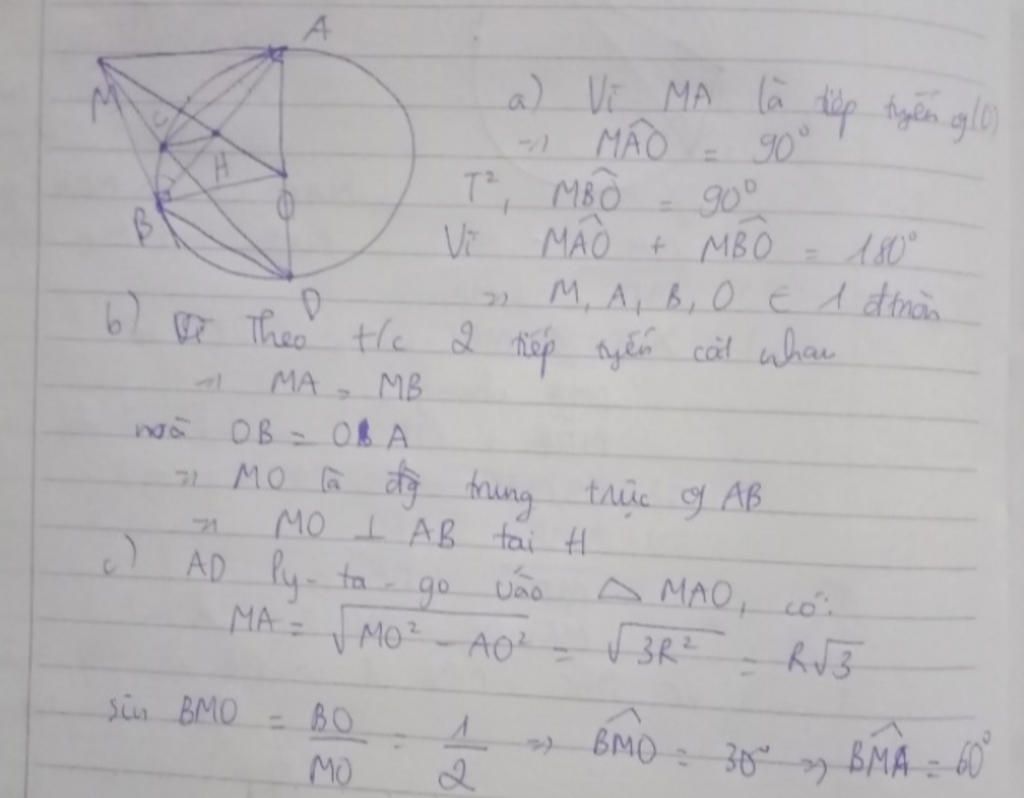 A
M
C
H
B
O
D
a) Vì MA là tiếp tuyến củ(O)
=> MÂO = 90°
T², MBÔ = 90°
Vì MÂO + MBÔ = 180°
=> M, A, B, O ∈ 1 đtròn
b) Theo t/c 2 tiếp tuyến cắt nhau
=> MA = MB
mà OB = OA
=> MO là đg trung trực củ AB
=> MO ⊥ AB tại H
c) AD Py-ta-go vào △ MAO, có:
MA = √(MO² - AO²) = √(3R²) = R√3
sin BMO = BO/MO = 1/2 => BM̂O = 30° => BM̂A = 60°